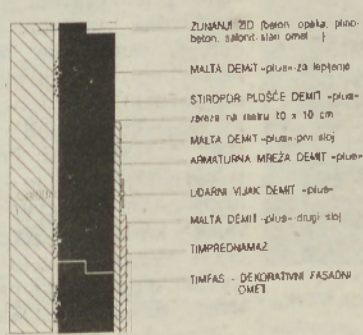 ZUNANJI ZID (beton, opeka, plino-
beton, salonit, stari omet ...)
MALTA DEMIT -plus- za lepljenje
STIROPOR PLOŠČE DEMIT -plus-
zareze na rastru 10 x 10 cm
MALTA DEMIT -plus- prvi sloj
ARMATURNA MREŽA DEMIT -plus-
UDARNI VIJAK DEMIT -plus-
MALTA DEMIT -plus- drugi sloj
TIMPREDNAMAZ
TIMFAS - DEKORATIVNI FASADNI
OMET